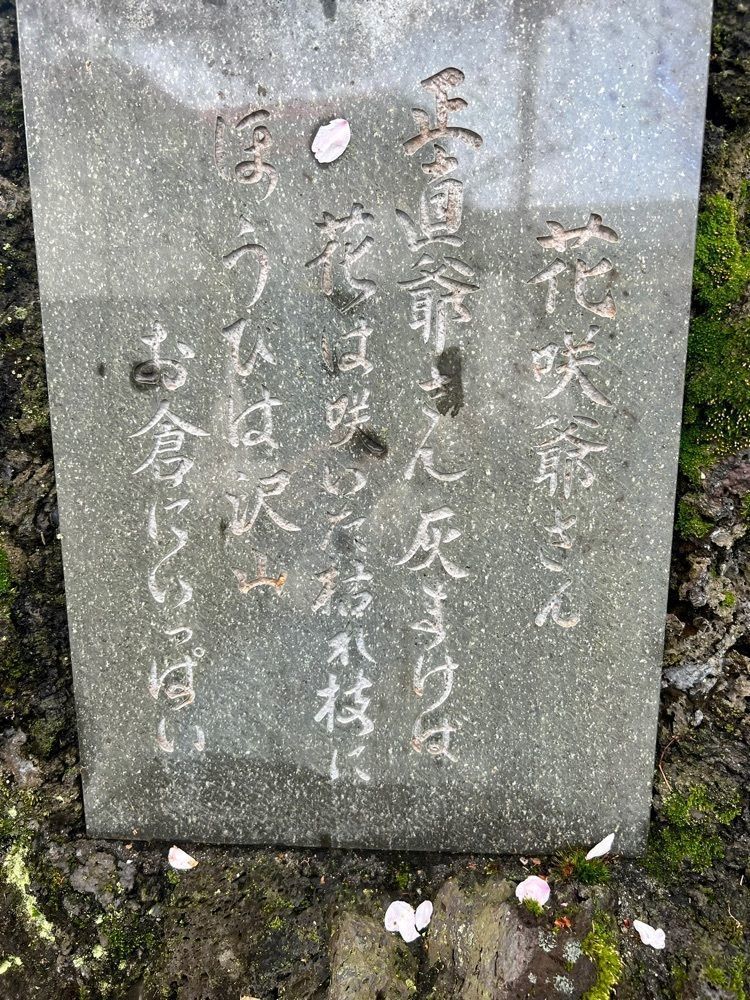 花咲爺さん
正直爺さん灰まけば
花は咲いた枯れ枝に
ほうびは沢山
お倉にいっぱい